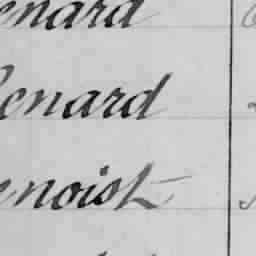 enard
enard
enoist